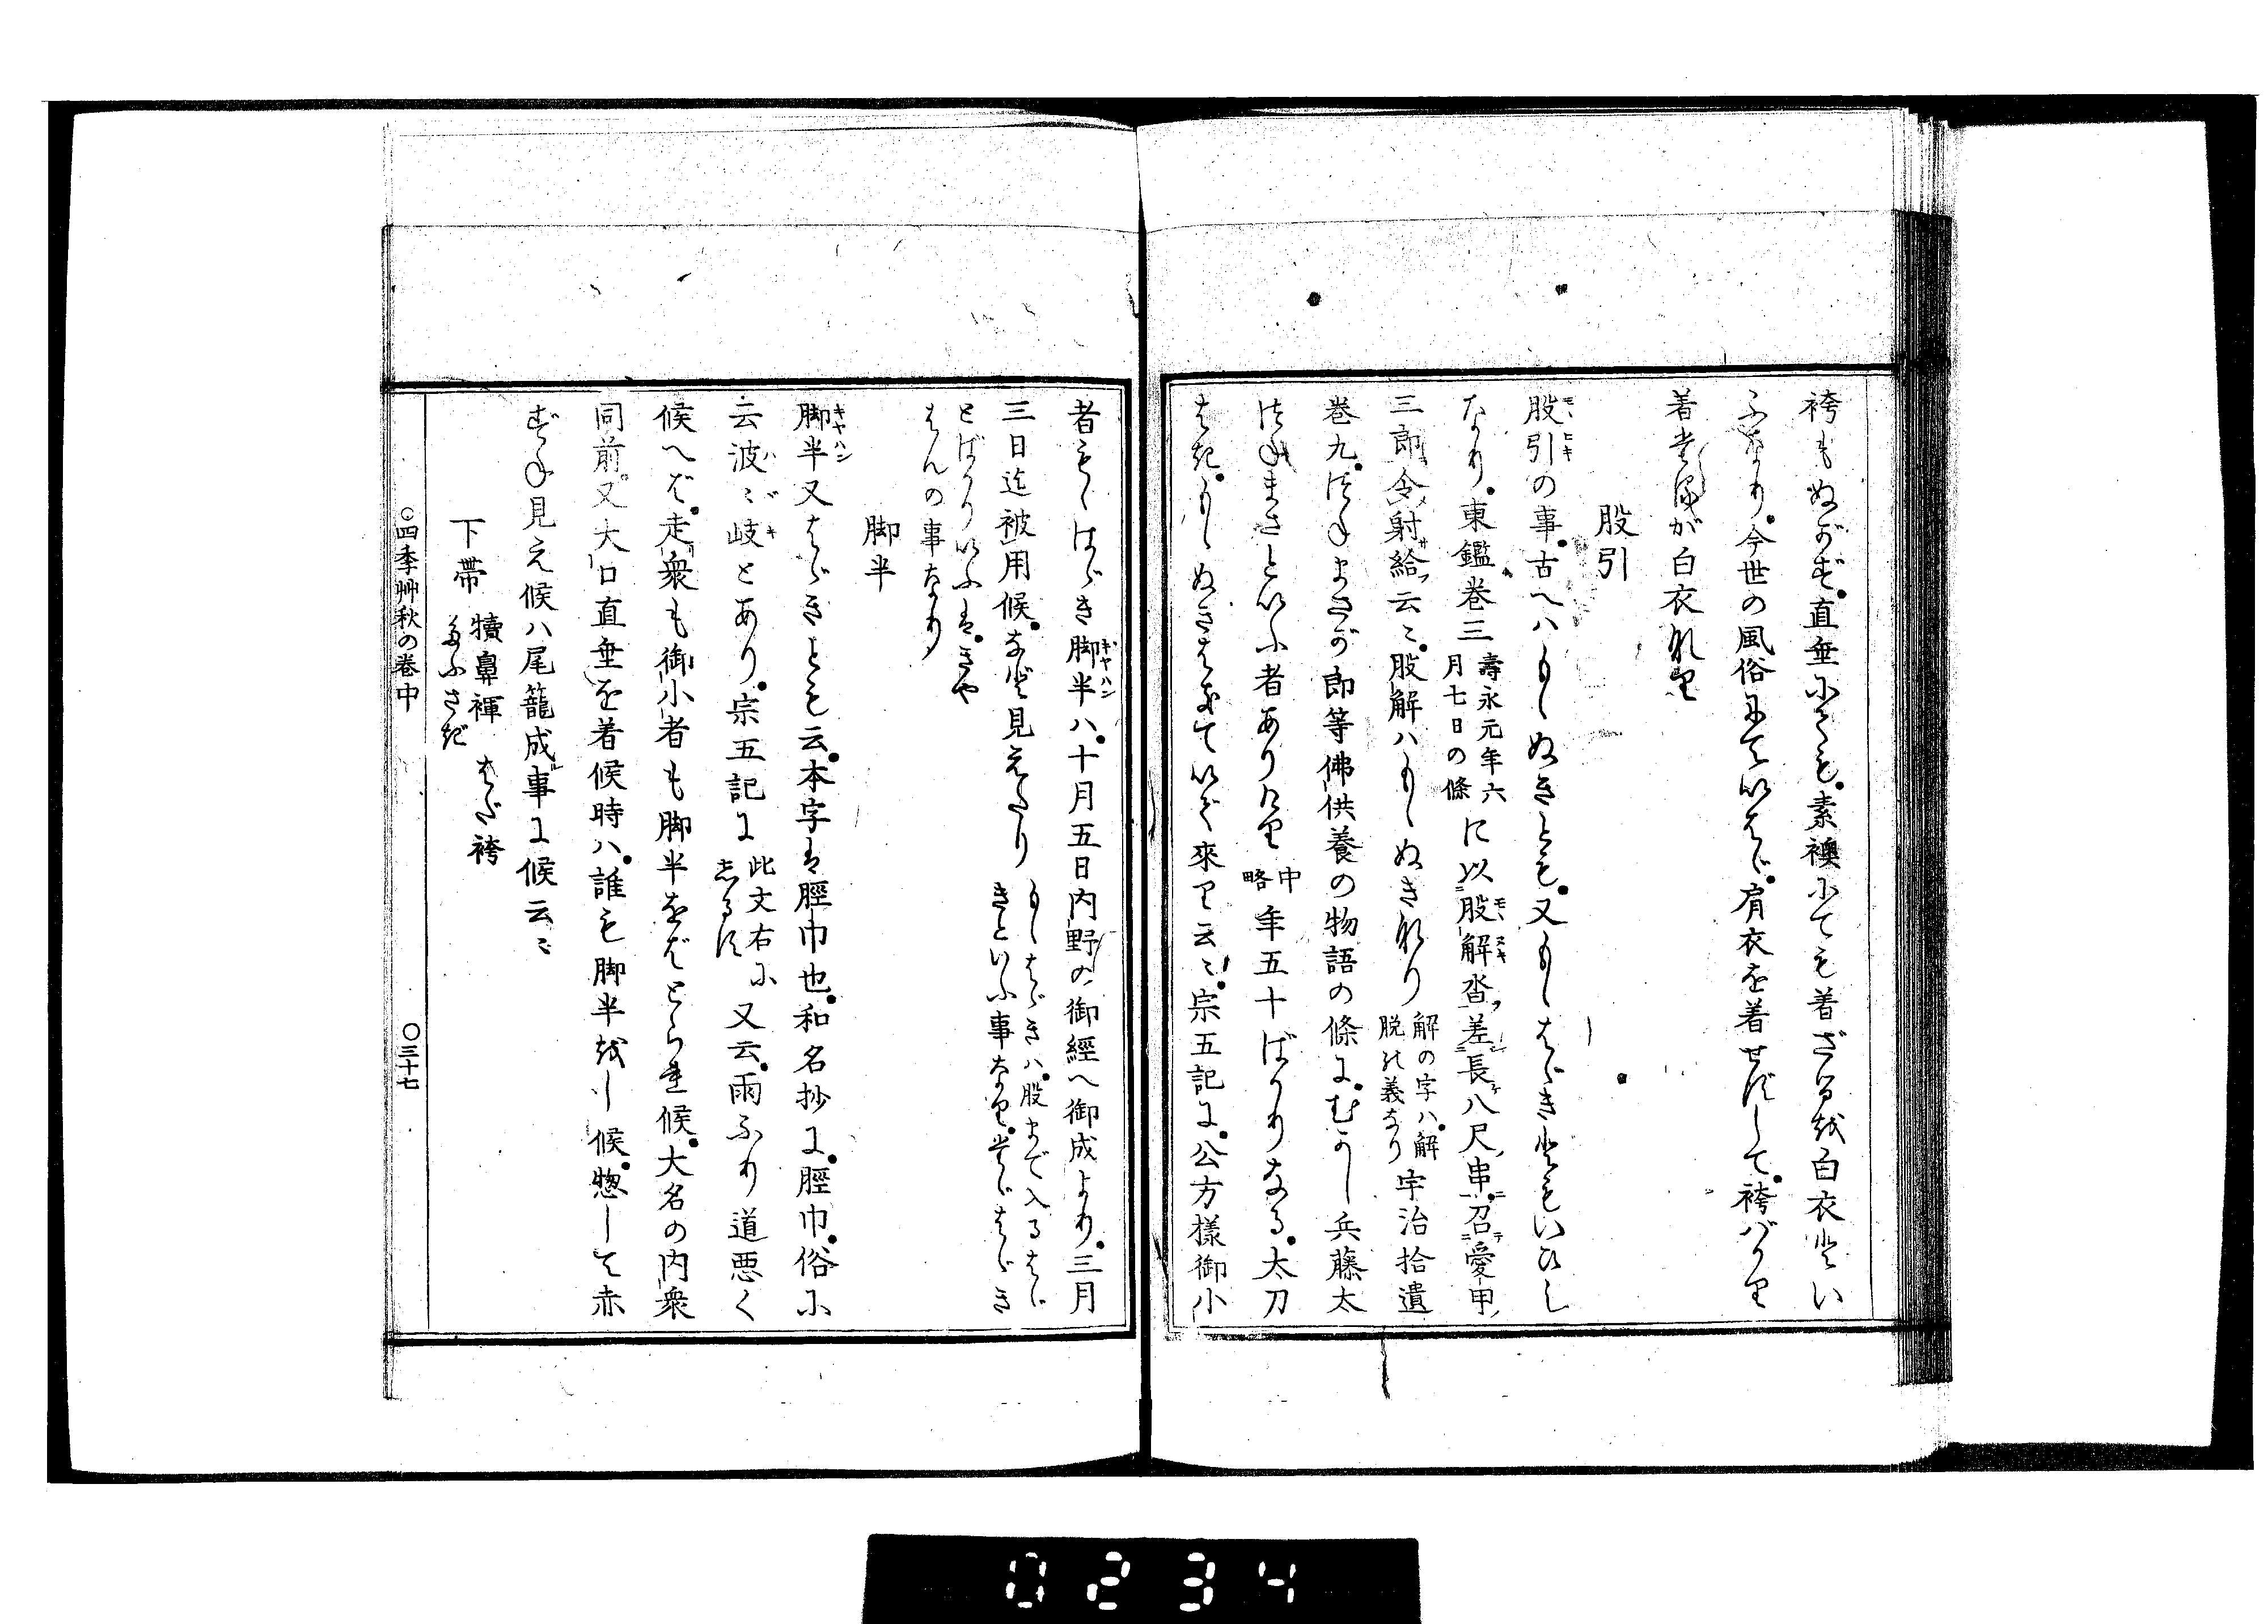 袴もぬがず。直垂にても。素襖にても着ざるを白衣とい
ふなり。今世の風俗にていはゞ。肩衣を着せずして。袴バかり
着たるが白衣なり
股引
股引の事。古へハもゝぬきとも。又もゝはゞきともいひし
なり。東鑑巻三壽永元年六月七日の條に以股解沓差長八尺串召愛甲
三郎令射給云〻。股解ハもゝぬきなり解の字ハ解脱の義なり宇治拾遺
巻九。つねまさが郎等佛供養の物語の條に。むかし兵藤太
つねまさといふ者ありけり中略年五十ばかりなる。太刀
はき。もゝぬきはきていで來り云〻。宗五記に。公方様御小
者もゝはゞき脚半ハ。十月五日内野の御經へ御成より。三月
三日迄被用候。など見えたりもゝはゞきハ。股まで入るはゞきといふ事なり。たゞはゞき
とばかりいふは。きや
はんの事なり
脚半
脚半又はゞきとも云。本字は脛巾也。和名抄に。脛巾。俗に
云波〻岐とあり。宗五記に此文右にしるす又云。雨ふり道悪く
候へば。走衆も御小者も脚半をばとられ候。大名の内衆
同前。又大口直垂を着候時ハ。誰も脚半をし候。惣して赤
ずね見え候ハ尾籠成事に候云〻
下帯 犢鼻褌 はだ袴 たふさぎ
○四季艸秋の巻中
○三十七
0234